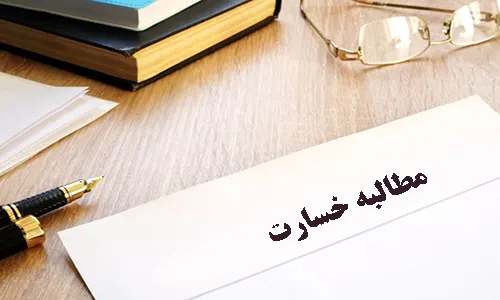 مطالبه خسارت